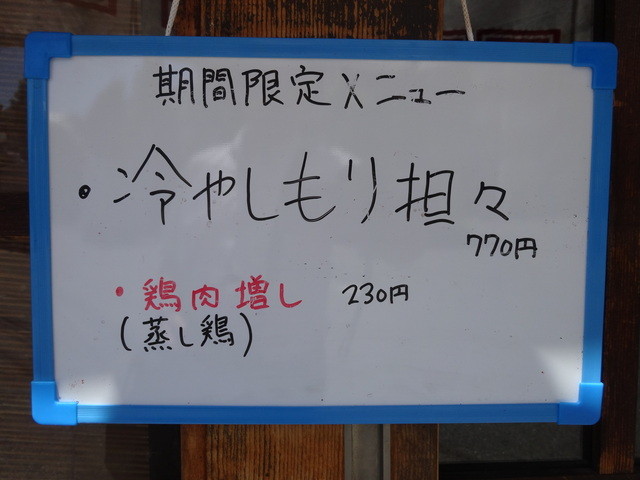 期間限定メニュー
・冷やしもり担々
770円
・鶏肉増し 230円
(蒸し鶏)